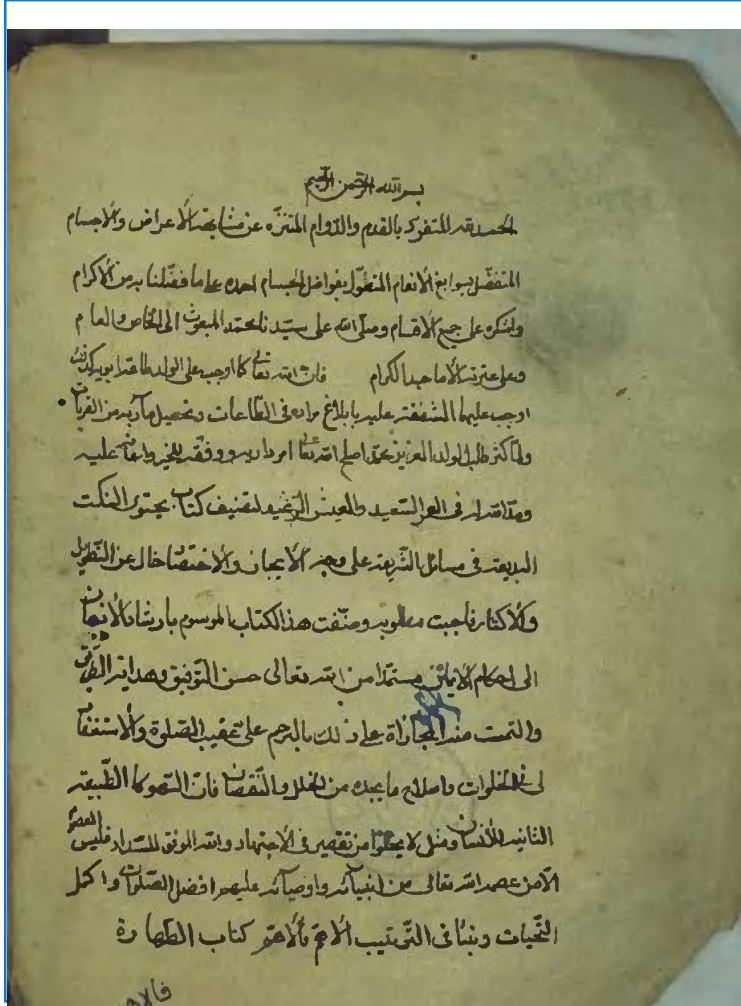 بسم الله الرحمن الرحيم
الحمد لله المتفرد بالقدم والدوام المتنزه عن مشابهة الاعراض والاجسام
المتفضل بسوابغ الانعام المتطول بفواضل الجسام احمده على ما فضلنا به من الاكرام
واشكره على جميع الاقسام وصلى الله على سيدنا محمد المبعوث الى الخاص والعام
وعلى عترته الاماجد الكرام فان الله تعالى كما اوجب على الولد طاعة ابويه كذلك
اوجب عليهما الشفقة عليه بابلاغ مراده فى الطاعات وتحصيل مآربه من القربات
ولما كثر طلب الولد العزيز محمد اصلح الله تعالى امر داريه ووفقه للخير واعانه عليه
ومد الله له فى العمر السعيد والعيش الرغيد لتصنيف كتاب يحتوى النكت
البديعة فى مسائل الشريعة على وجه الايجاز والاختصار خال عن التطويل
والاكثار فاجبت مطلوبه وصنفت هذا الكتاب الموسوم بارشاد الاذهان
الى احكام الايمان مستمدا من الله تعالى حسن التوفيق وهداية الطريق
والتمست منه المجازاة على ذلك بالترحم على عقيب الصلوة والاستغفار
لى فى الخلوات واصلاح ما يجده من الخلل والنقصان فان السهو كالطبيعة
الثانية للانسان ومثلى لا يخلو من تقصير فى الاجتهاد والله الموفق للسداد فليس المعصوم
الا من عصمه الله تعالى من انبيآئه واوصيآئه عليهم افضل الصلوات واكمل
التحيات ونبدأ فى الترتيب الاهم فالاهم كتاب الطهارة